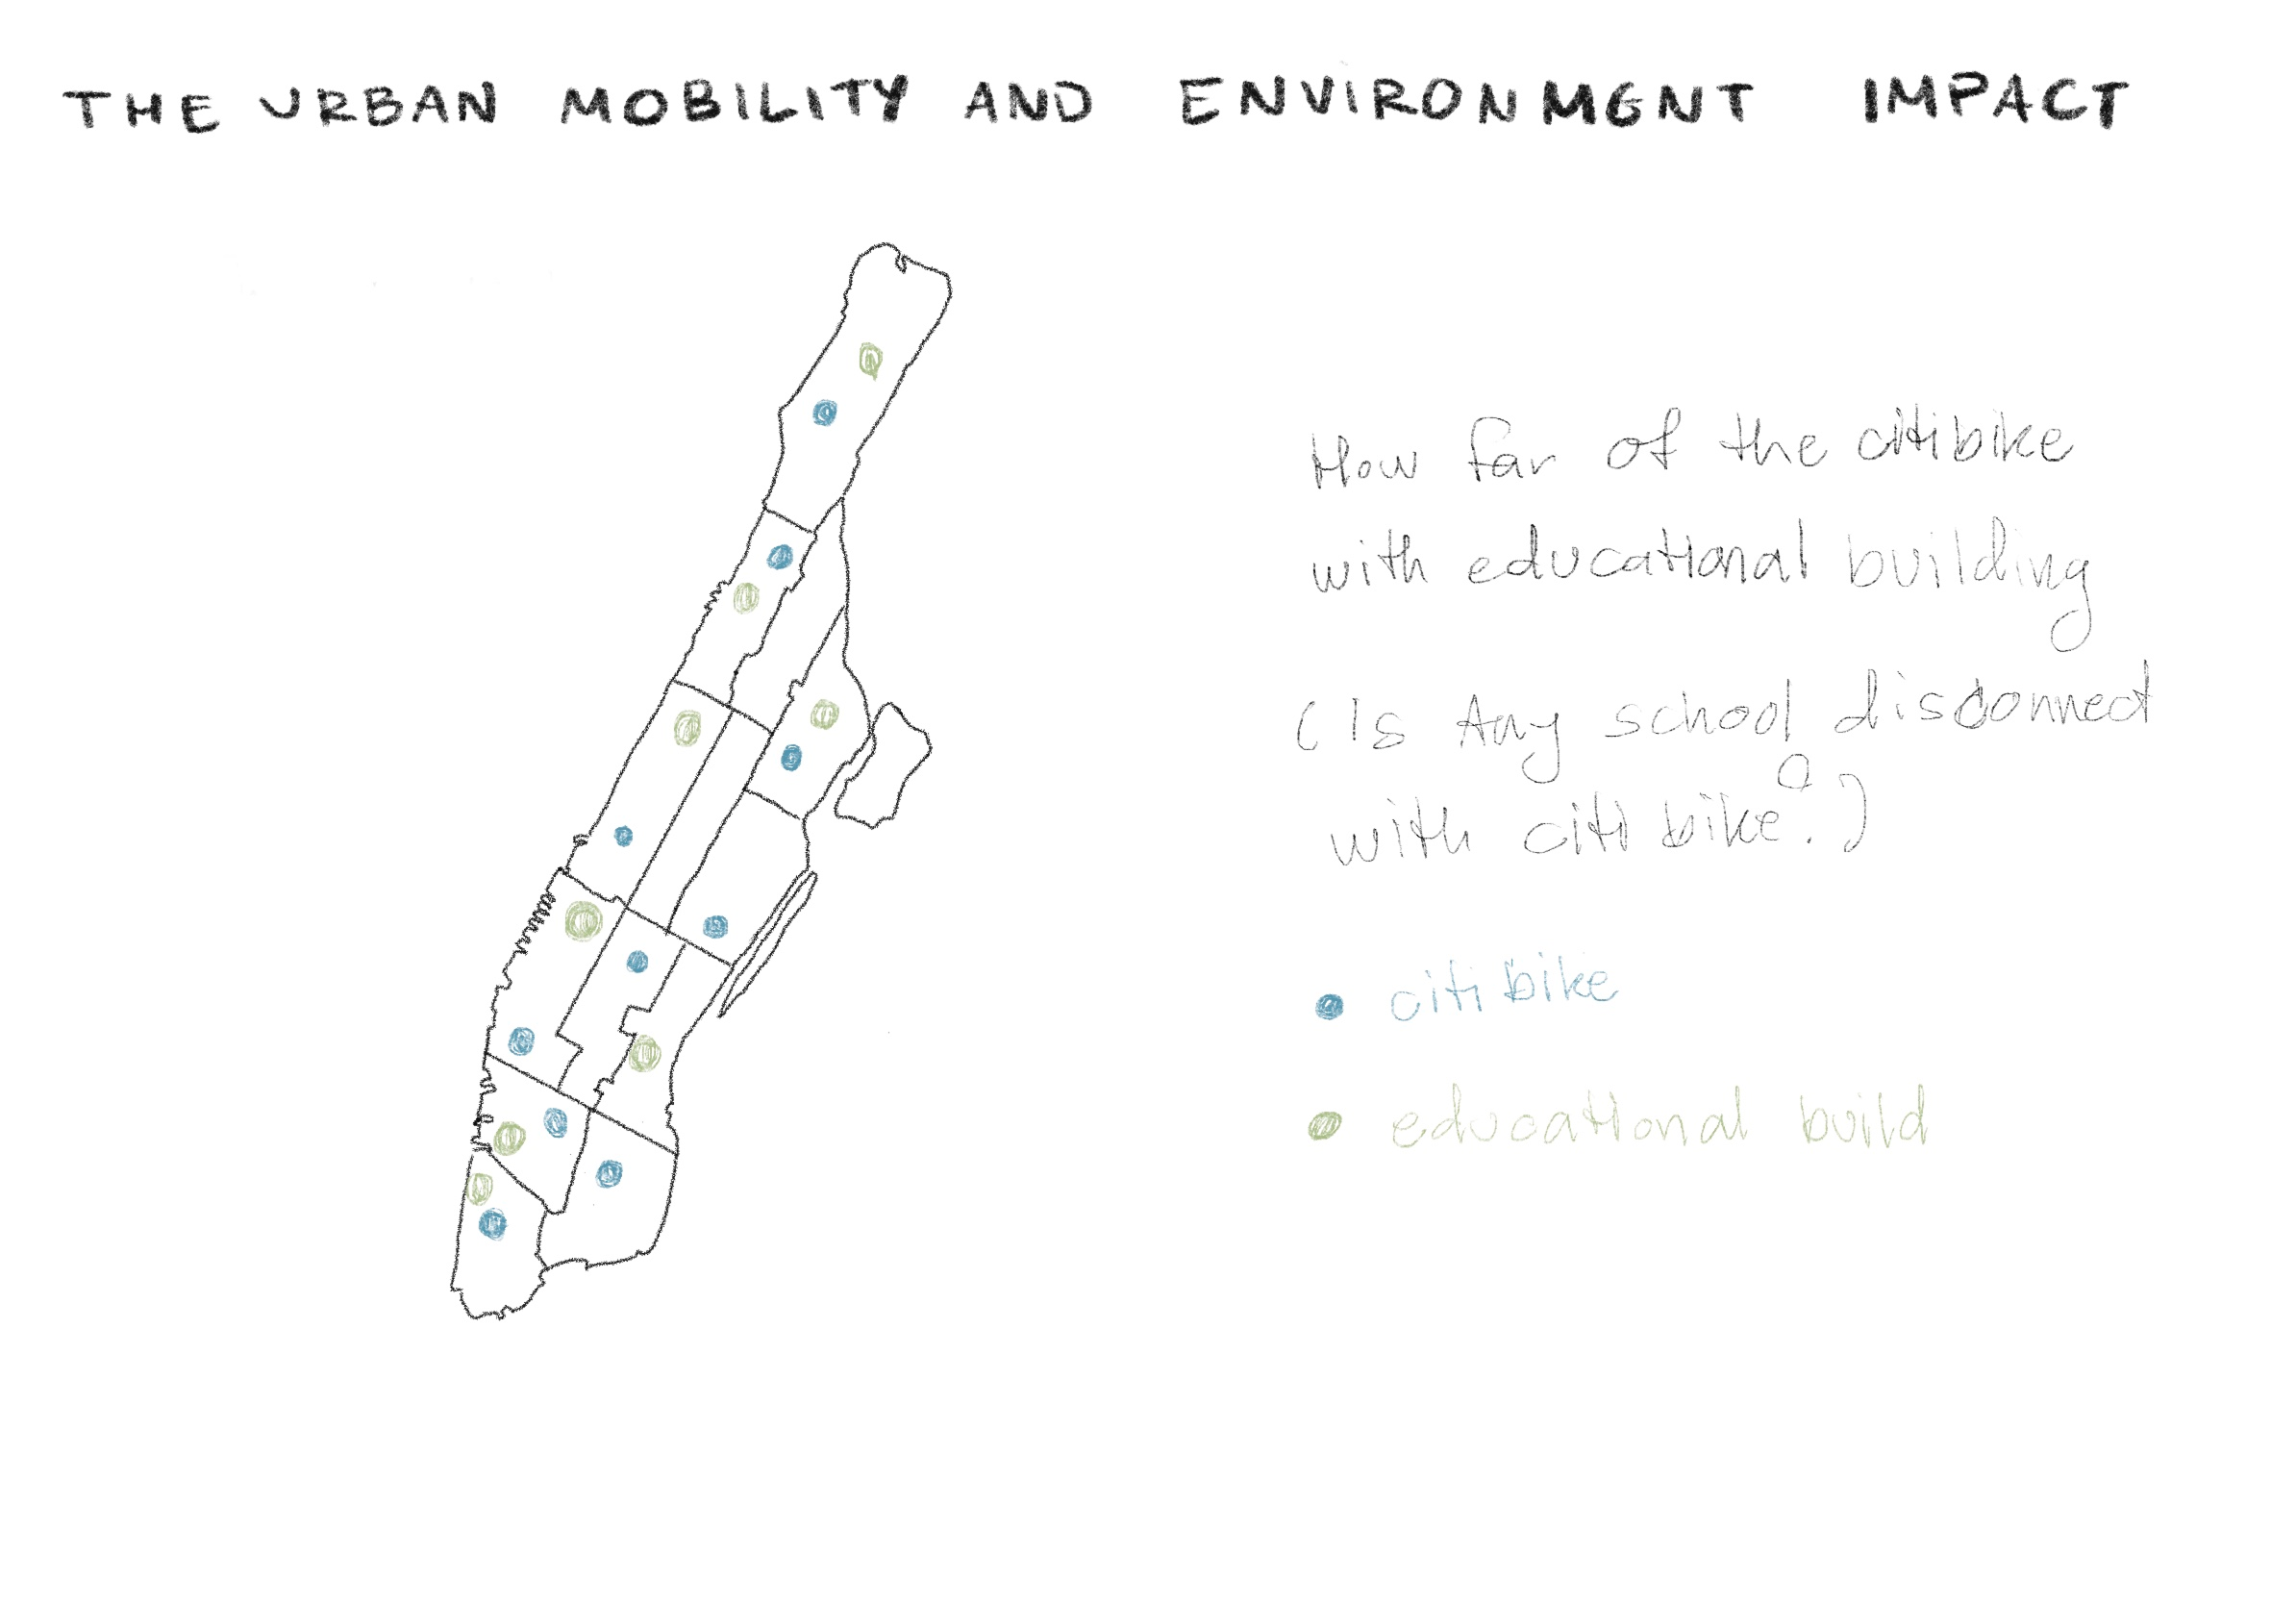 THE URBAN MOBILITY AND ENVIRONMENT IMPACT
How far of the citibike
with educational building
(Is Any school disconnect
with citi bike?)
citi bike
educational build